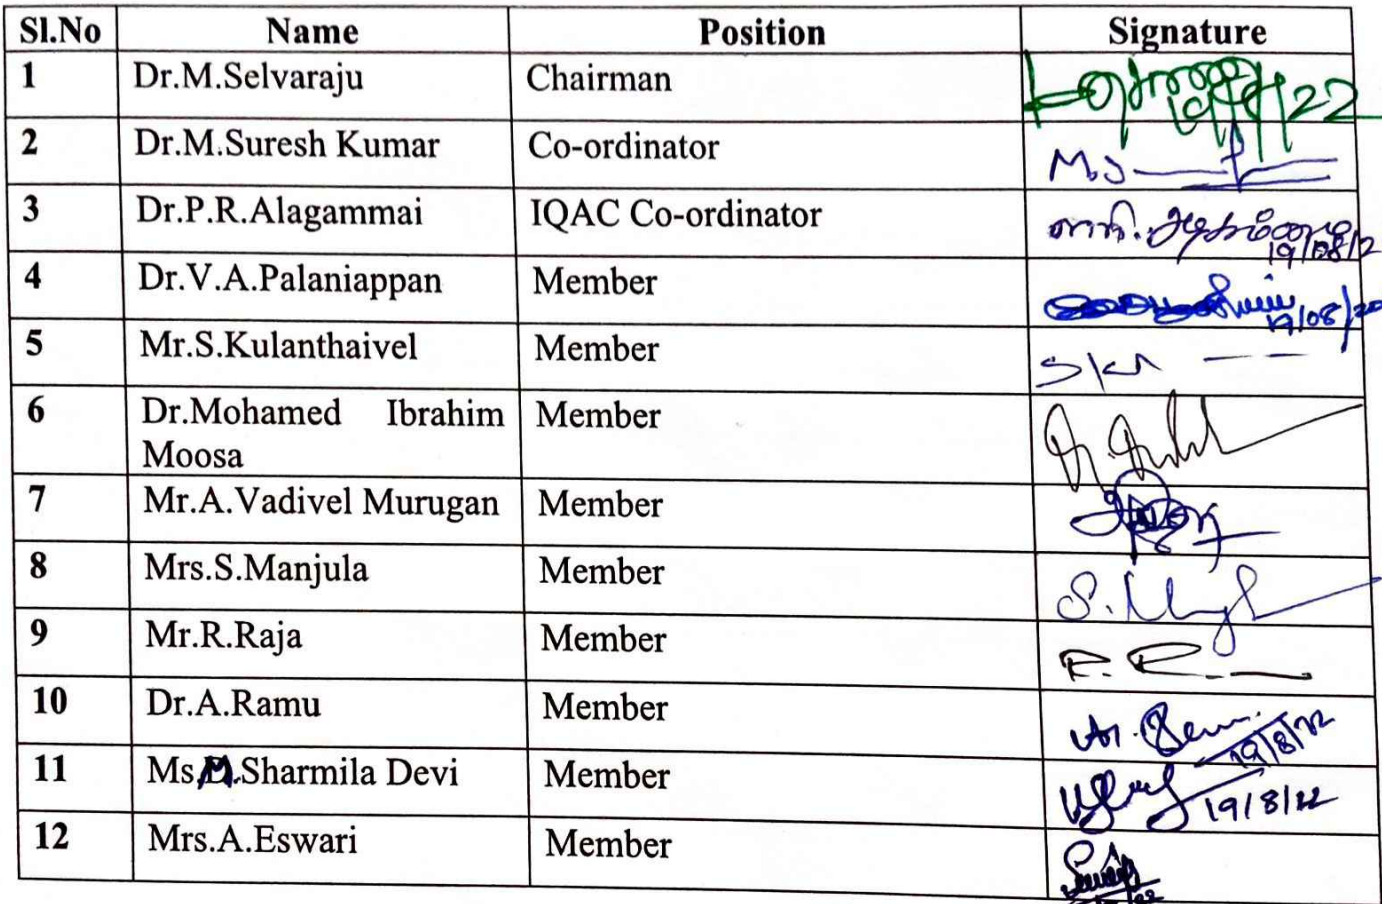 Sl.No Name Position Signature
1 Dr.M.Selvaraju Chairman
2 Dr.M.Suresh Kumar Co-ordinator M.S
3 Dr.P.R.Alagammai IQAC Co-ordinator
19/08/2
4 Dr.V.A.Palaniappan Member
19/08/20
5 Mr.S.Kulanthaivel Member
6 Dr.Mohamed Ibrahim Member
Moosa
7 Mr.A.Vadivel Murugan Member
8 Mrs.S.Manjula Member
9 Mr.R.Raja Member R. R
10 Dr.A.Ramu Member
19/8/22
11 Ms.M.Sharmila Devi Member
19/8/22
12 Mrs.A.Eswari Member